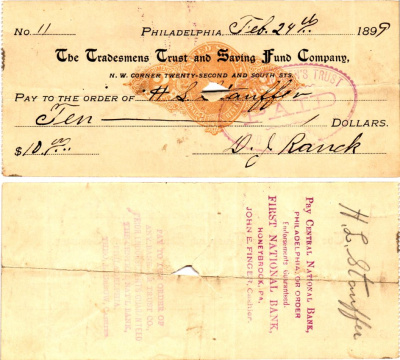 No. 11 Philadelphia, Feb. 24th 1899
The Tradesmens Trust and Saving Fund Company,
N. W. CORNER TWENTY-SECOND AND SOUTH STS.
PAY TO THE ORDER OF H L Stauffer
Ten DOLLARS.
$10.00 D. J. Ranck
TRUST
PAID
PAY CENTRAL NATIONAL BANK,
PHILADELPHIA, OR ORDER
Endorsements Guaranteed.
FIRST NATIONAL BANK,
HONEYBROOK, PA.
JOHN E. FINGER, Cashier.
H. L. Stauffer
PAY TO THE ORDER OF